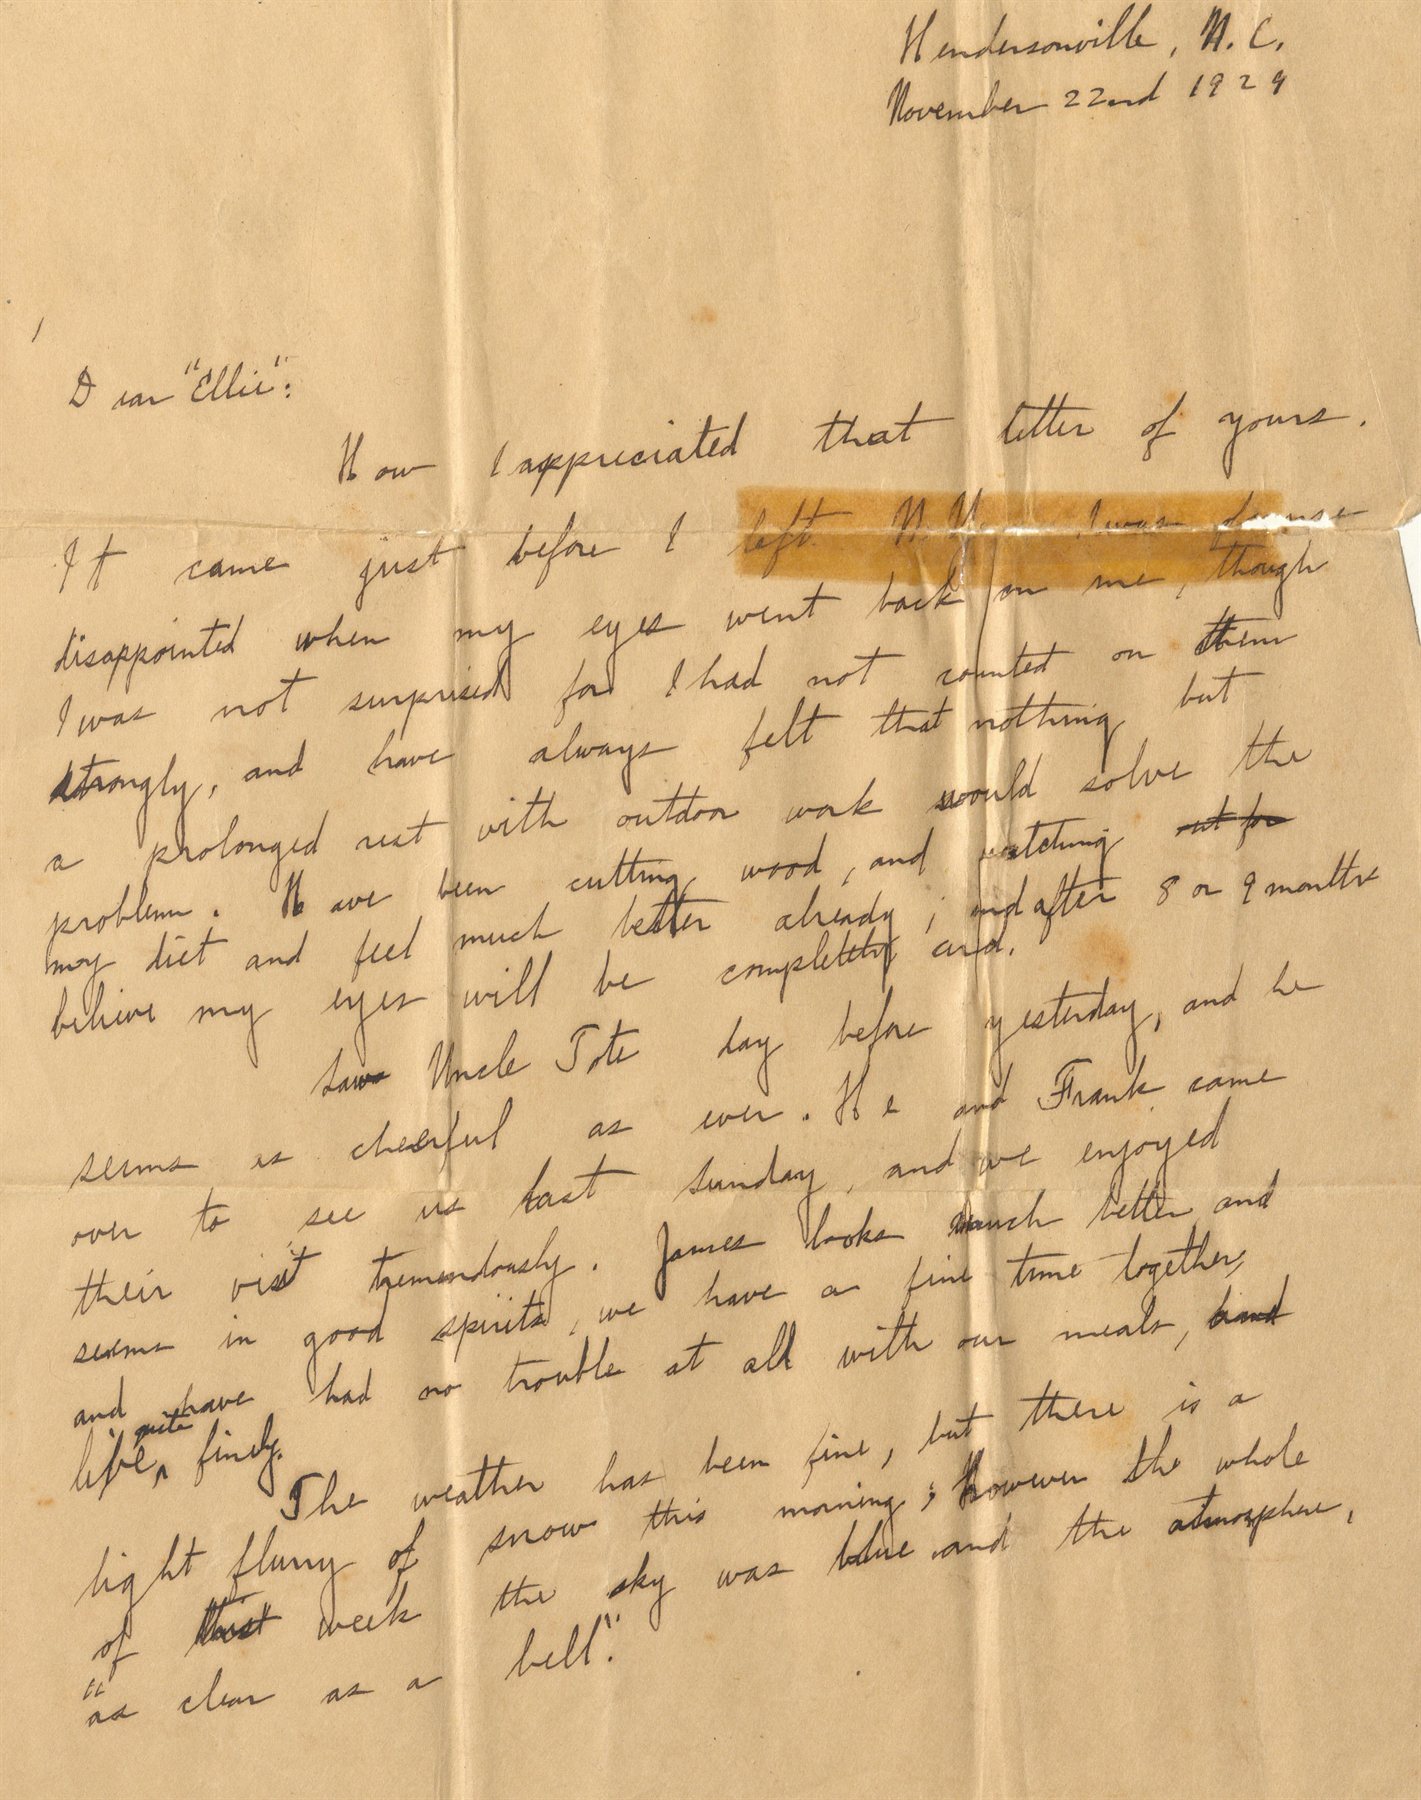 Hendersonville, N. C.
November 22nd 1929
Dear "Ellie":
How I appreciated that letter of yours.
It came just before I left N.Y. I was
disappointed when my eyes went back on me, though
I was not surprised for I had not counted on them
strongly, and have always felt that nothing but
a prolonged rest with outdoor work would solve the
problem. Have been cutting wood, and watching
my diet and feel much better already; and after 8 or 9 months
believe my eyes will be completely
Saw Uncle Tote day before yesterday, and he
seems as cheerful as ever. He and Frank came
over to see us last Sunday, and we enjoyed
their visit tremendously. James looks much better and
seems in good spirits, we have a fine time together,
and have had no trouble at all with our meals,
live quite finely.
The weather has been fine, but there is a
light flurry of snow this morning; However the whole
of week the sky was blue and the atmosphere,
"as clear as a bell".